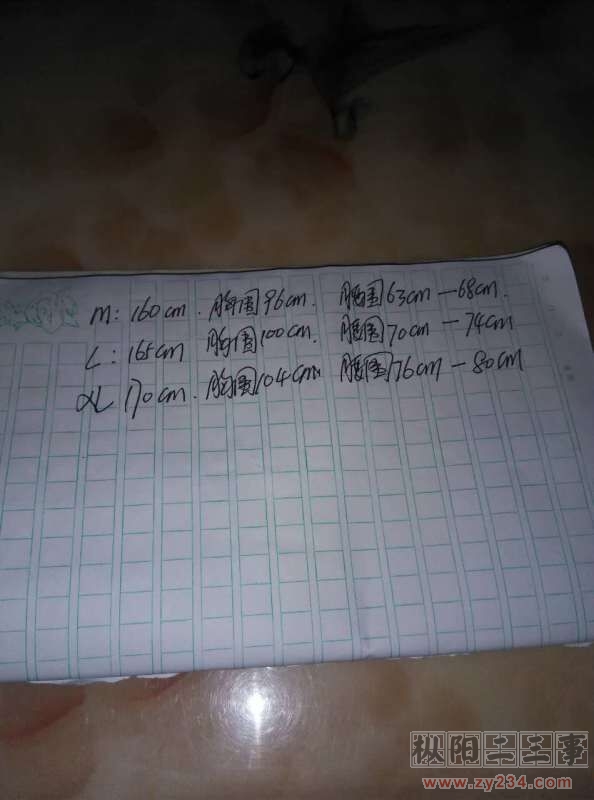 M: 160cm. 胸围96cm. 腰围63cm—68cm.
L: 165cm 胸围100cm. 腰围70cm—74cm
XL 170cm. 胸围104cm. 腰围76cm—80cm
枞阳
www.zy234.com